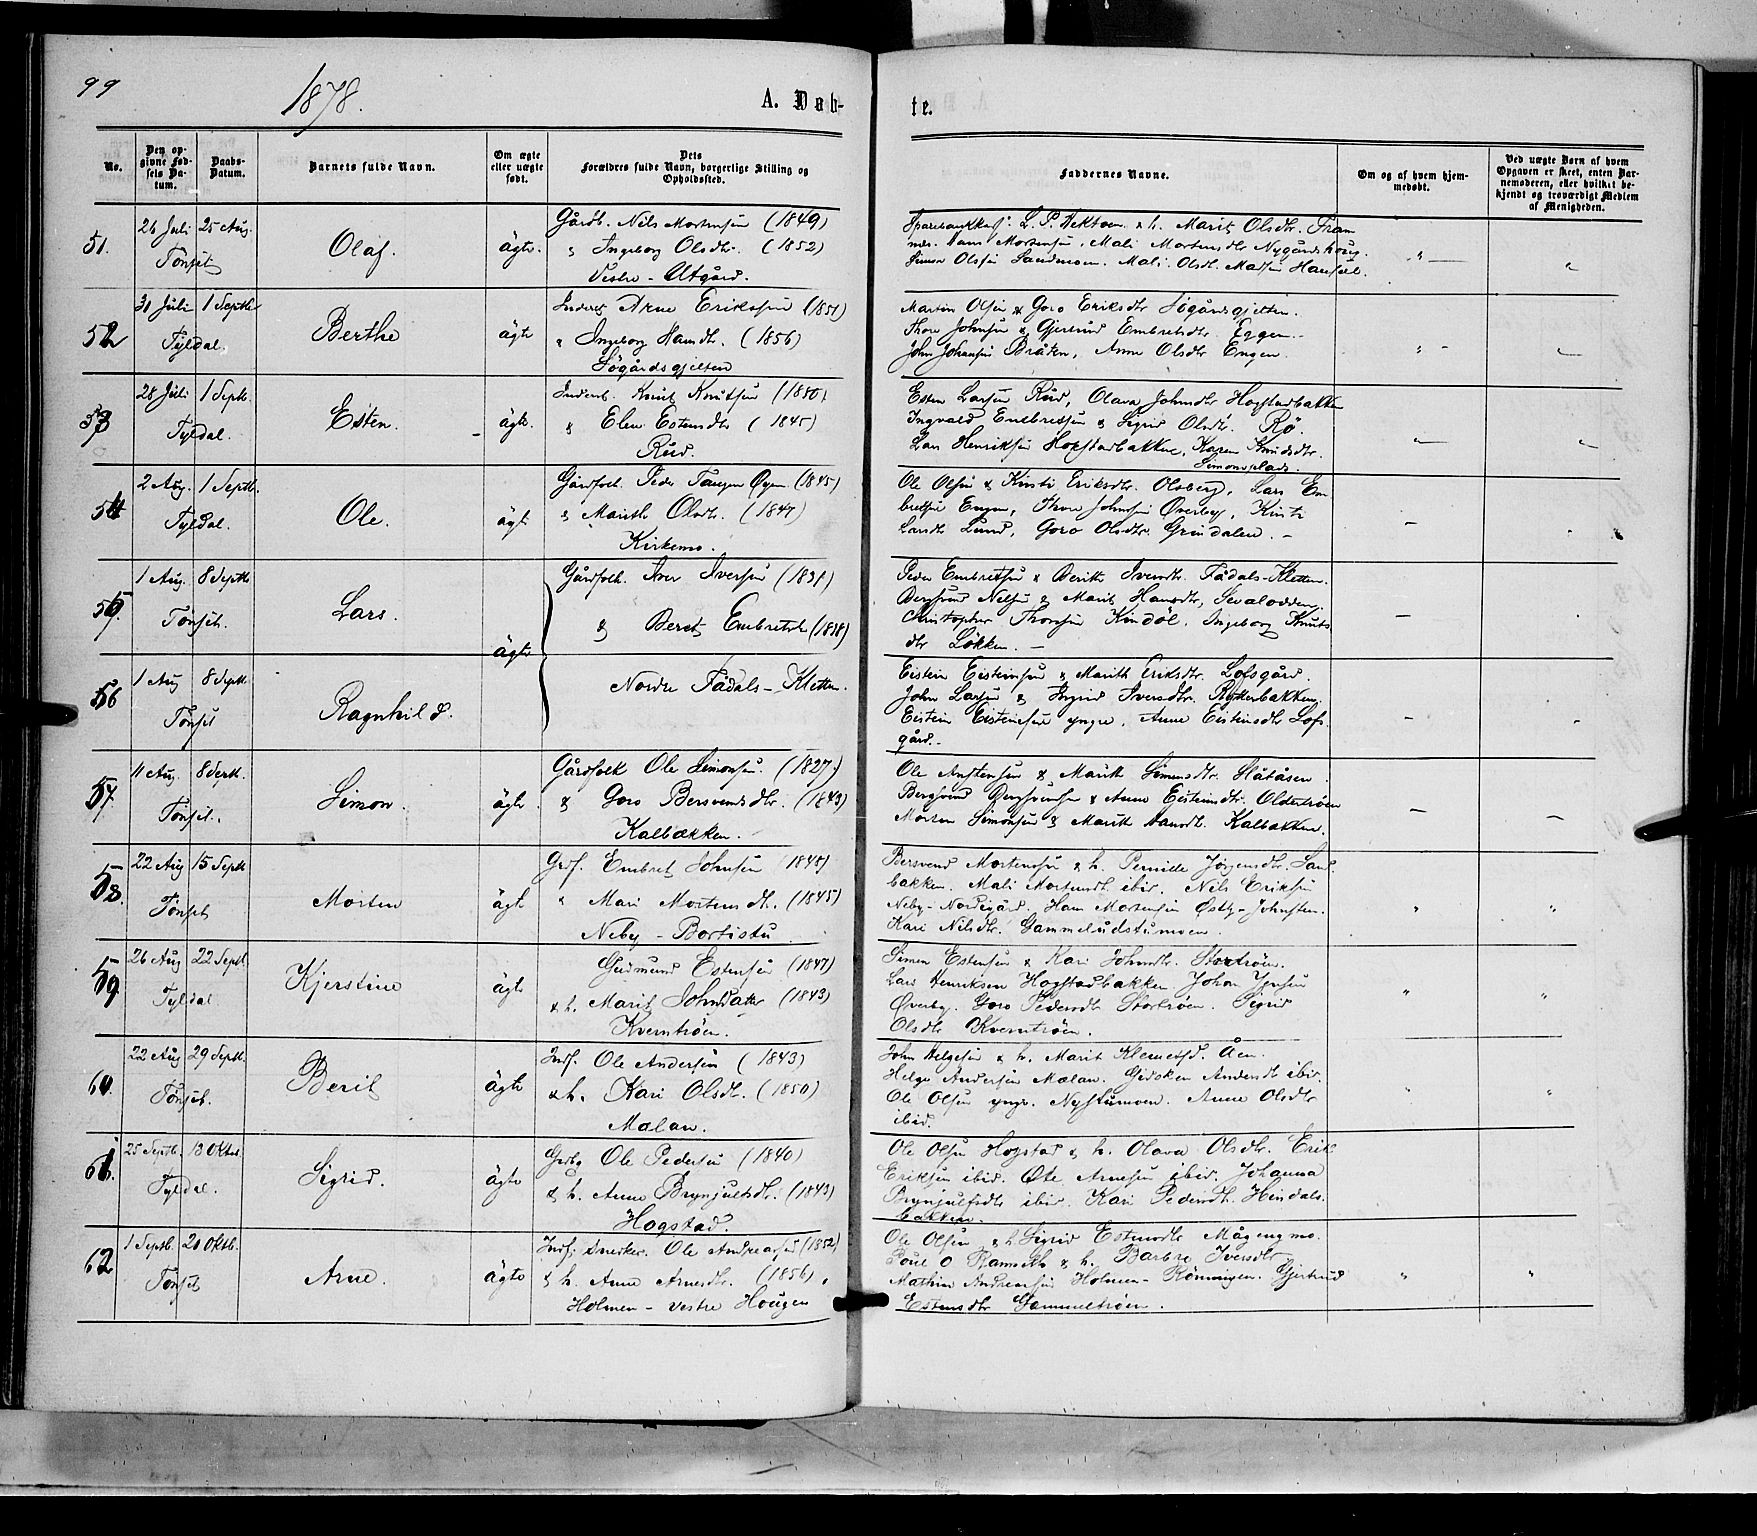 99
1878.
A. Døb-
te.
No.
Den op-
givne Fød-
sels Da-
tum.
Daabs-
Datum.
Barnets fulde Navn.
Om ægte
eller uægte
født.
Dets
Forældres fulde Navn, borgerlige Stilling og
Opholdssted.
Faddernes Navne.
Om og af hvem hjem-
medøbt.
Ved uægte Børn af hvem
Opgaven er skeet, enten Bar-
nemoderen, eller hvilket be-
kjendt og troværdigt Medlem
af Menigheden.
51.
26 Juli
25 Aug.
Tønset
Olaf.
ägte.
Gårdb. Nils Mortensen (1849)
" Ingeborg Olsdtr. (1852)
Vestre - Utgård.
L. P. Vektoen & h. Marit Olsdtr.
Hans Mortensen, Mali Mortensdtr Nygårdshoug.
Simen Olsen Sandmoen. Mali Olsdtr
52
31 Juli
1 Septb
Tyldal.
Berthe
ägte
Inderst Arne Eriksen (1851)
" Ingeborg Hansdtr. (1856)
Sögårdsgjelten
Martin Olsen & Goro Eriksdtr Sögårdsgjelten.
Thore Johnsen & Gjertrud Embretsdtr Eggen.
John Johansen Bråten, Anne Olsdtr Engen.
53
28 Juli
1 Septb.
Tyldal.
Esten.
ägte.
Inderst. Knut Knutsen (1850)
& Elen Estensdtr (1845)
Rud.
Esten Larsen Rud, Olava Johnsdtr Hogstadbakken
Ingvald Embretsen & Sigrid Olsdtr. Rø.
Lars Henriksen Hogstadbakken, Karen Knudsdtr.
Simonsplads.
54
2 Aug.
1 Septb.
Tyldal.
Ole.
ägte
Gårdfolk. Peder Tangen Øyen (1845)
& Marith Olsdtr. (1847)
Kirkemo.
Ole Olsen & Kirsti Eriksdtr. Olsberg, Lars Em-
bretsen Engen, Thore Johnsen Øverby, Kirsti
Larsdtr Lund, Goro Olsdtr. Grindalen.
55
1 Aug.
8 Septb
Tønset.
Lars.
ägte
Gårdfolk. Iver Iversen (1831)
& Beret Embretsdtr (1838)
Peder Embretsen & Berith Iversdtr. Fådals-Kletten.
Bersvend Nilsen & Marit Hansdtr, Sevalodden,
Christopher Thoresen Kindöl, Ingeborg Knuts
dtr Løkken.
56
1 Aug
8 Septb
Tønset
Ragnhild.
Nordre Fådals-Kletten.
Eistein Eisteinsen & Marith Eriksdtr. Lofsgård.
John Larsen & Ingrid Iversdtr. Ryttersbakken,
Eistein Eisteinsen yngre, Anne Eisteinsdtr Lofs
gård.
57.
11 Aug.
8 Septb.
Tønset.
Simon.
ägte.
Gårdfolk Ole Simonsen. (1827.)
& Goro Bersvendsdtr. (1843)
Kalbækken.
Ole Anstensen & Marith Simensdtr. Slåtåsen.
Bersvend Bersvendsen & Anne Eisteinsdtr. Oldertrøen
Morten Simonsen & Marith Hansdtr. Kalbækken.
58.
22 Aug
15 Septb
Tønset
Morten
ägte
Grdf. Embret Johnsen (1848)
" Mari Mortensdtr. (1845)
Neby - Bortistu
Bersvend Mortensen & h. Pernille Jørgensdtr. Sand
bakken. Mali Mortensdtr ibid. Nils Eriksen
Neby-Nordigård. Hans Mortensen Østby-Johnsten.
Kari Nilsdtr. Gammeludstumoen.
59
26 Aug
22 Septb.
Tyldal
Kjerstine
ägte
Gudmund Estensen (1847)
& h. Marit Johnsdatter (1843)
Kverntrøen.
Simen Estensen & Kari Johnsdtr. Stortrøen.
Lars Henriksen Hogstadbakken Johan Jensen
Øverby. Goro Pedersdtr Stortrøen. Sigrid
Olsdtr Kverntrøen.
60.
22 Aug
29 Septb.
Tønset.
Berit
ägte
Indf. Ole Andersen (1843)
& h. Kari Olsdtr. (1850)
Mælan.
John Helgesen & h. Marit Klemetsd. Åen.
Helge Andersen Mælan. Gidsken Andersdtr ibid.
Ole Olsen yngr. Nystumoen. Anne Olsdtr
ibid.
61.
25 Septb.
13 Oktbr.
Tyldal.
Sigrid.
ägte
Grdbr Ole Pedersen (1840)
& h. Anne Brynjulfsdtr. (1843)
Hogstad.
Ole Olsen Hogstad & h. Olava Olsdtr. Erik
Eriksen ibid. Ole Arnesen ibid. Johanna
Brynjulfsdtr ibid. Kari Pedersdtr. Hindals-
bakken.
62
1 Septb.
20 Oktb.
Tønset
Arne.
ägte
Indf. Snedker. Ole Andreassen (1852)
& h. Anne Arnesdtr. (1856),
Holmen - Vestre Hougen
Ole Olsen & h. Sigrid Estensdtr Mågengmo.
Poul O Ramseth & h. Barbro Iversdtr
Mathias Andreassen Holmen - Rønningen. Gjertrud
Estensdtr Gammeltrøen.